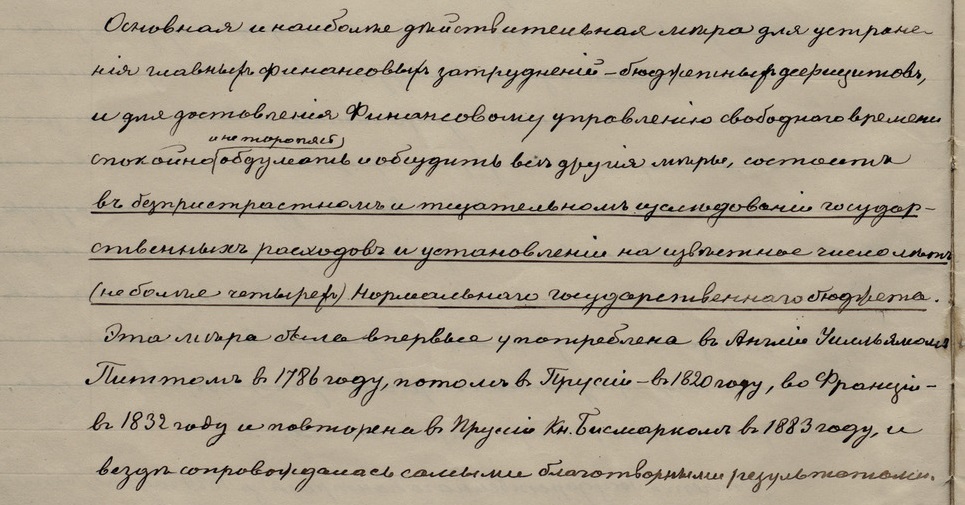 Основная и наиболѣе дѣйствительная мѣра для устране-
нія главныхъ финансовыхъ затрудненій – бюджетныхъ дефицитовъ,
и для доставленія Финансовому управленію свободнаго времени
и не торопясь
спокойно обдумать и обсудить всѣ другія мѣры, состоитъ
въ безпристрастномъ и тщательномъ изслѣдованіи государ-
ственныхъ расходовъ и установленіи на извѣстное число лѣтъ
(не болѣе четырехъ) нормальнаго государственнаго бюджета.
Эта мѣра была впервые употреблена въ Англіи Уилльямомъ
Питтомъ въ 1786 году, потомъ въ Прусіи – въ 1820 году, во Франціи –
въ 1832 году и повторена въ Прусіи Кн. Бисмаркомъ въ 1883 году, и
вездѣ сопровождалась самыми благотворными результатами.